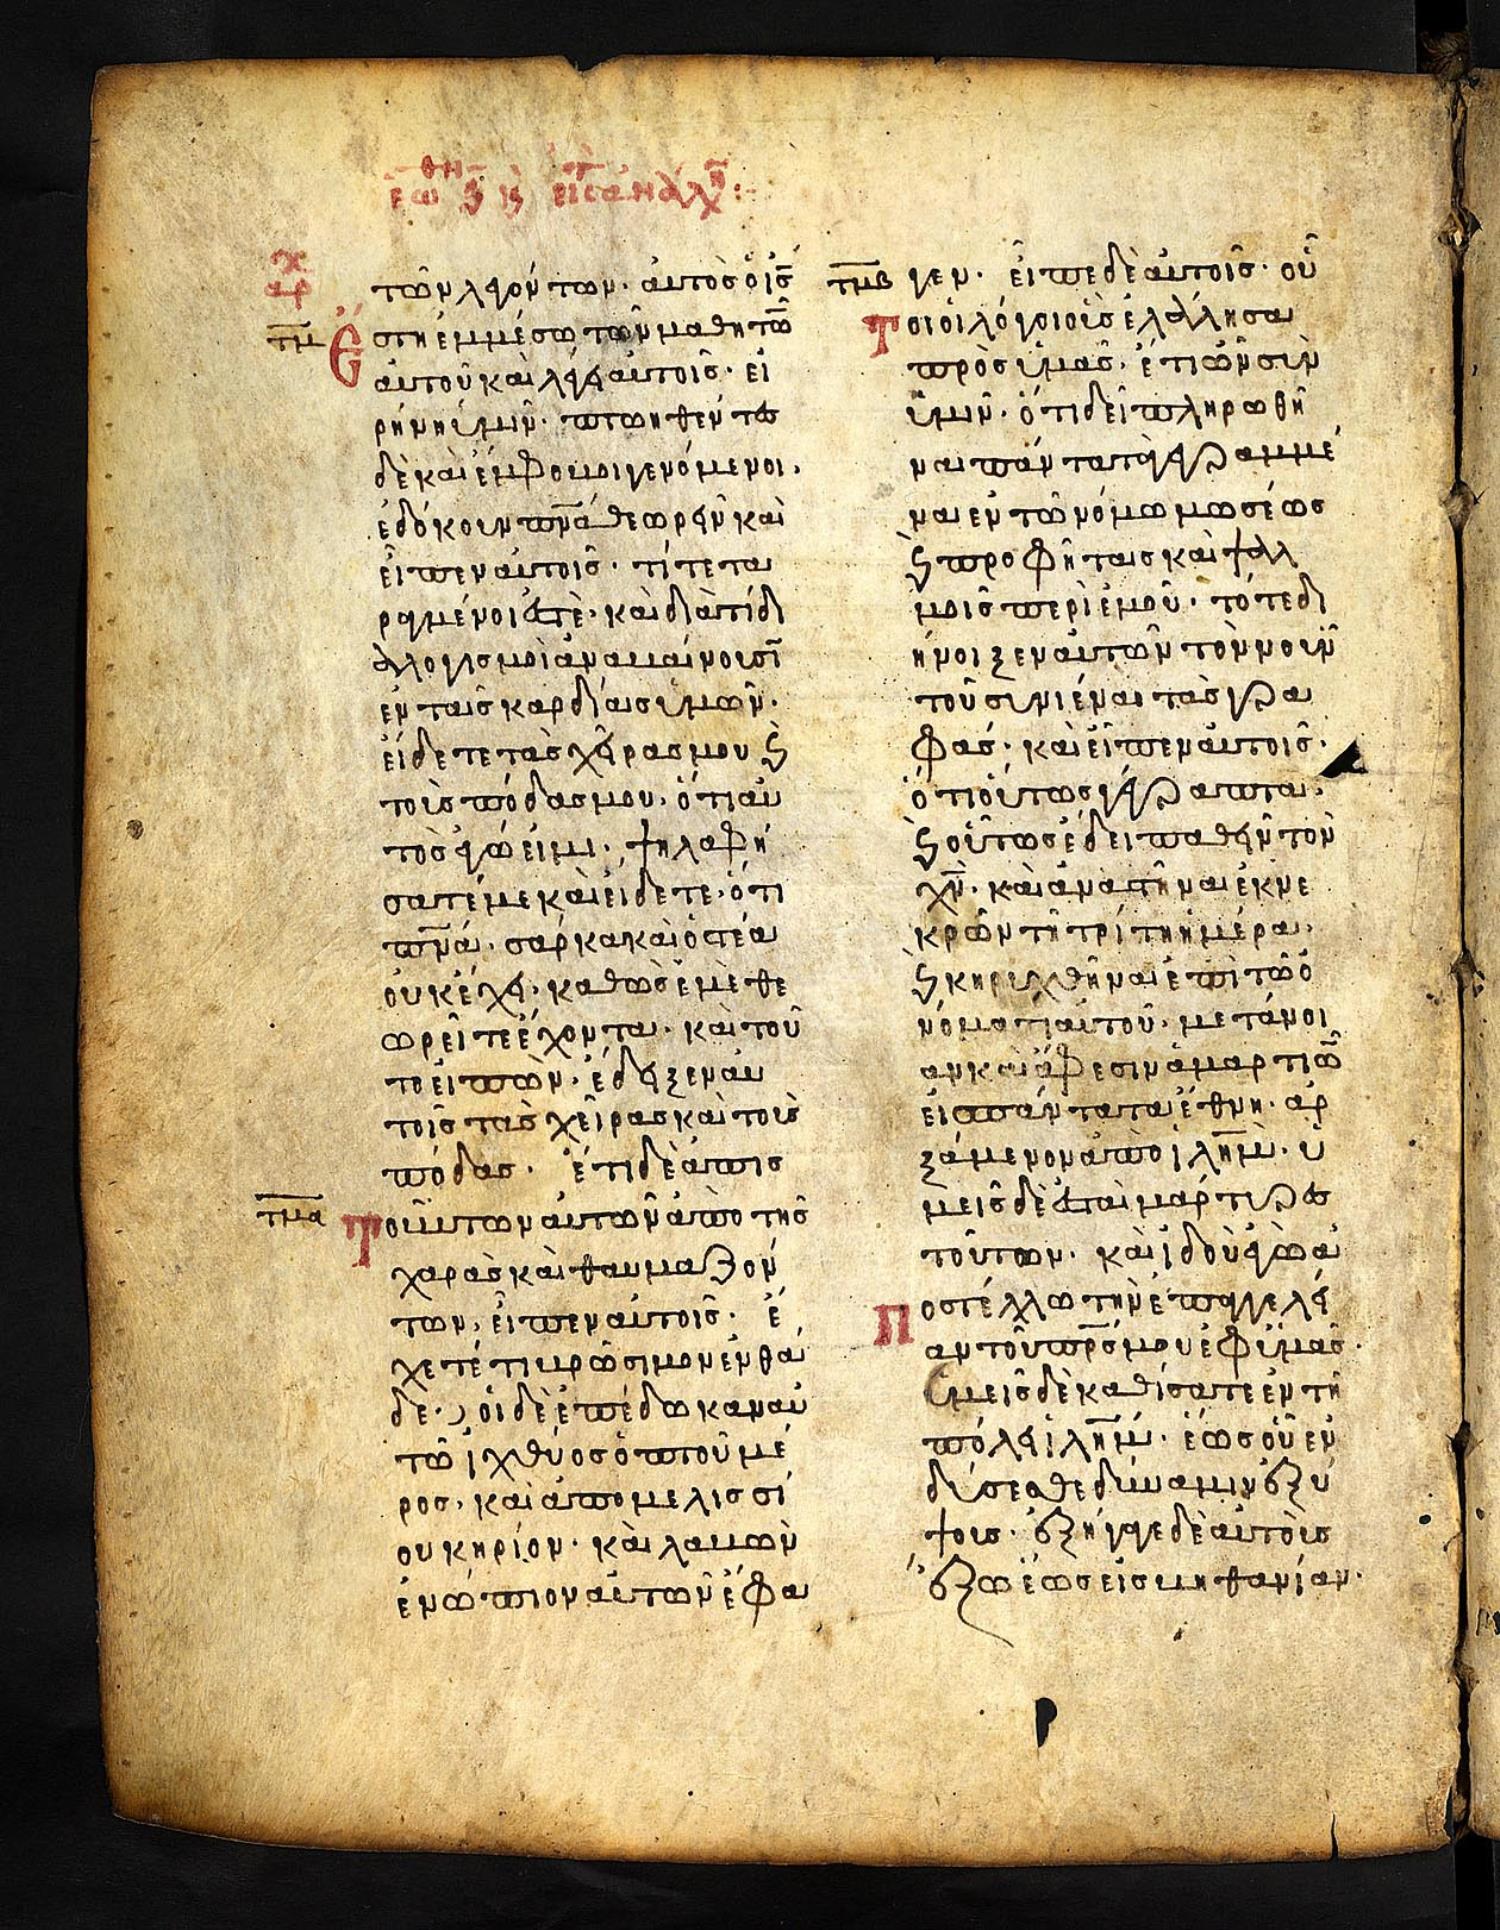 τῶν λεγόντων· αὐτὸς ὁ ι̅ς̅
τμ Ἔστη ἐμμέσω τῶν μαθητῶ̅
αὐτοῦ καὶ λέγει αὐτοῖς· εἰ
ρήνη ὑμῖν· πτωηθέντες
δὲ καὶ ἔμφοβοι γενόμενοι·
ἐδόκουν π̅ν̅α̅ θεωρεῖν καὶ
εἶπεν αὐτοῖς· τί τετα
ραγμένοι ἐστὲ· καὶ διατί δι
αλογισμοὶ ἀναβαίνουσι̅
ἐν ταῖς καρδίαις ὑμῶν·
εἴδετε τὰς χεῖρας μου ϗ
τοὺς πόδας μου· ὅτι αὐ
τὸς ἐγώ εἰμι· ψηλαφή
σατέ με καὶ εἴδετε· ὅτι
π̅ν̅α̅· σάρκα καὶ ὀστέα
οὐκ ἔχει· καθὼς ἐμὲ θε
ωρεῖτε ἔχοντα· καὶ τοῦ
το εἰπὼν· ἔδειξεν αὐ
τοῖς τὰς χεῖρας καὶ τοὺς
πόδας· ἔτι δὲ ἀπισ
τμα Τούντων αὐτῶν ἀπὸ τῆς
χαρᾶς καὶ θαυμαζόν
των, εἶπεν αὐτοῖς· ἔ
χετέ τι βρῶσιμον ἐνθά
δε· οἱ δὲ ἐπέδωκαν αὐ
τῶ ἰχθύος ὀπτοῦ μέ
ρος· καὶ ἀπὸ μελισσί
ου κηρίον· καὶ λαβὼν
ἐνώπιον αὐτῶν ἔφα
τμβ γεν· εἶπε δὲ αὐτοῖς· οὗ
Τοι οἱ λόγοι οὓς ἐλάλησα
πρὸς ὑμᾶς· ἔτι ὢν σὺν
ὑμῖν· ὅτι δεῖ πληρωθῆ
ναι πάντα τὰ γεγραμμέ
να ἐν τῶ νόμω μωσέως
ϗ προφήταις καὶ ψαλ
μοῖς περὶ ἐμοῦ· τότε δι
ήνοιξεν αὐτῶν τὸν νοῦν
τοῦ συνιέναι τὰς γρα
φάς· καὶ εἶπεν αὐτοῖς·
ὅτι οὕτως γέγραπται·
ϗ οὕτως ἔδει παθεῖν τὸν
χ̅ν̅· καὶ ἀναστῆναι ἐκ νε
κρῶν τῆ τρίτη ἡμέρα·
ϗ κηρυχθῆναι ἐπὶ τῶ ὀ
νόματι αὐτοῦ· μετάνοι
αν καὶ ἄφεσιν ἁμαρτιῶ̅
εἰς πάντα τὰ ἔθνη· ἀρ
ξάμενον ἀπὸ ι̅λ̅η̅μ̅· ὑ
μεῖς δὲ ἐσταὶ μάρτυρες
τούτων· καὶ ἰδοὺ ἐγὼ ἀ
Ποστέλλω τὴν ἐπαγγελεί
αν τοῦ π̅ρ̅ς̅ μου ἐφ ὑμᾶς·
ὑμεῖς δὲ καθίσατε ἐν τῆ
πόλει ι̅λ̅η̅μ̅· ἕως οὗ ἐν
δύσεσθε δύναμιν ἐξ ὕ
ψους· ἐξήγαγε δὲ αὐτοὺς
ἔξω ἕως εἰς βηθανίαν·